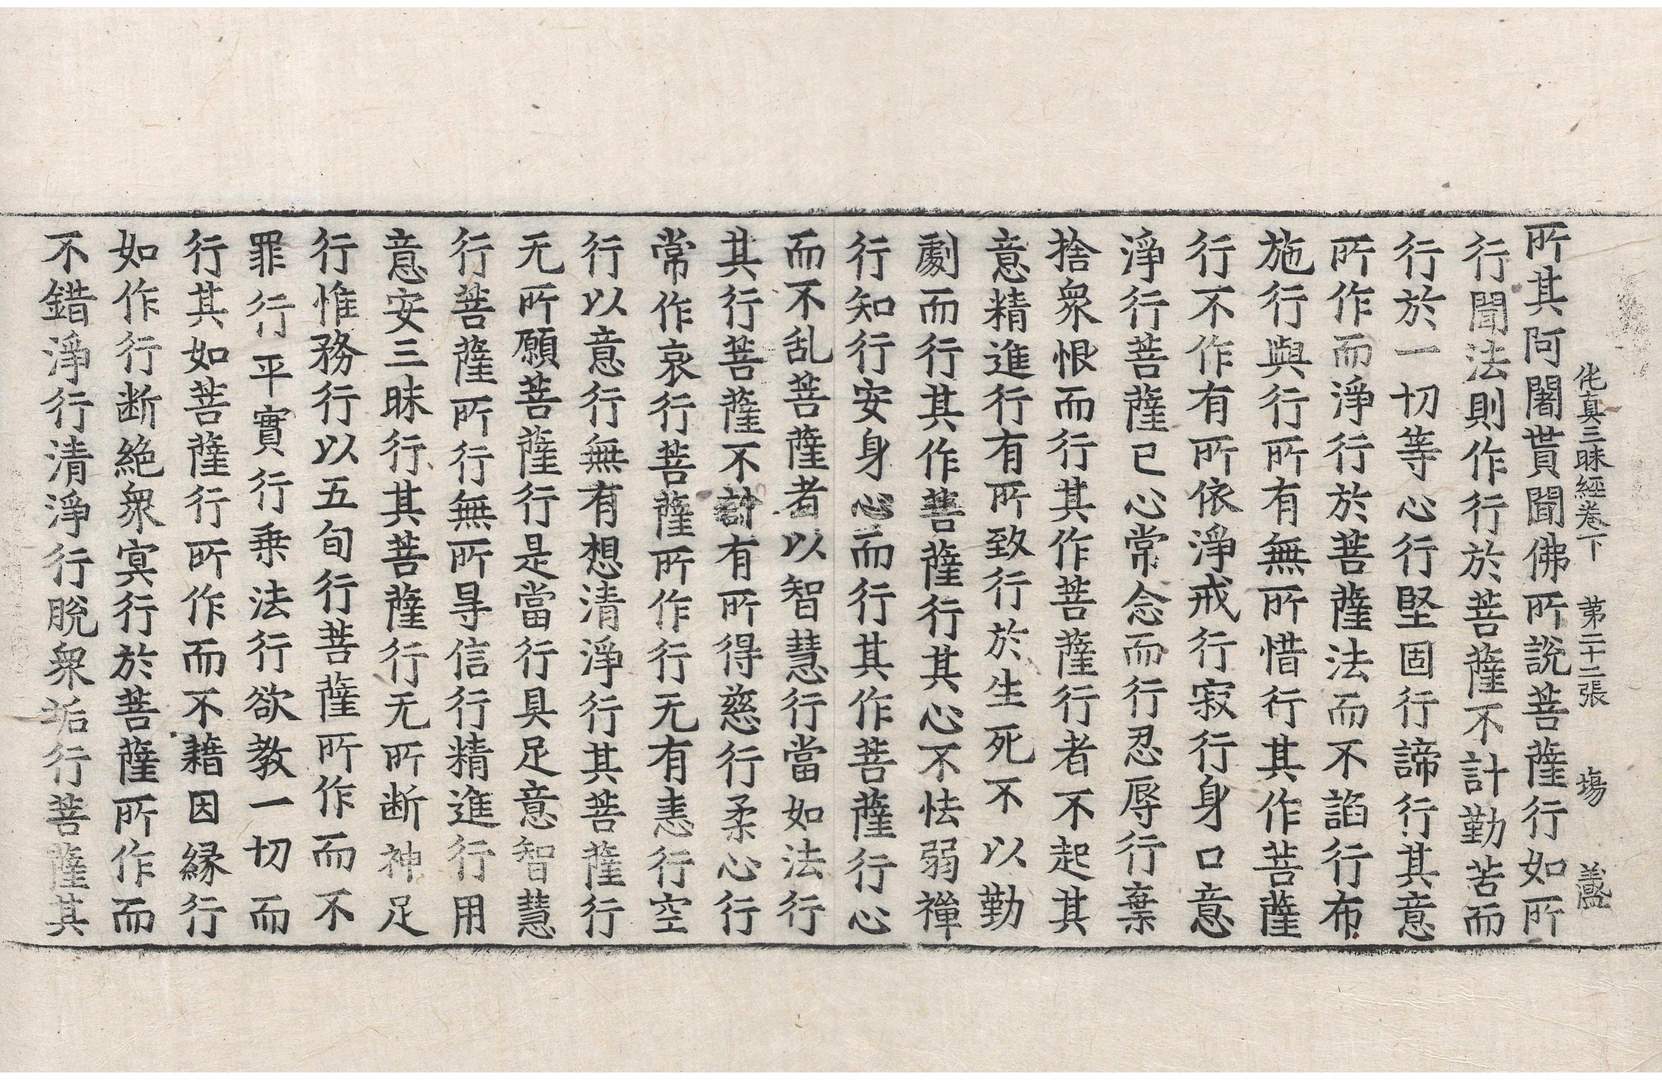 佗真三昧經卷下 第二十二張 場
所其阿闍貰聞佛所說菩薩行如所
行聞法則作行於菩薩不計勤苦而
行於一切等心行堅固行諦行其意
所作而淨行於菩薩法而不諂行布
施行與行所有無所惜行其作菩薩
行不作有所依淨戒行寂行身口意
淨行菩薩已心常念而行忍辱行棄
捨衆恨而行其作菩薩行者不起其
意精進行有所致行於生死不以勤
劇而行其作菩薩行其心不怯弱禪
行知行安身心而行其作菩薩行心
而不乱菩薩者以智慧行當如法行
其行菩薩不計有所得慈行柔心行
常作哀行菩薩所作行无有恚行空
行以意行無有想清淨行其菩薩行
无所願菩薩行是當行具足意智慧
行菩薩所行無所㝵信行精進行用
意安三昧行其菩薩行无所断神足
行惟務行以五旬行菩薩所作而不
罪行平實行乗法行欲教一切而
行其如菩薩行所作而不藉因縁行
如作行断絶衆㝠行於菩薩所作而
不錯淨行清淨行脫衆垢行菩薩其